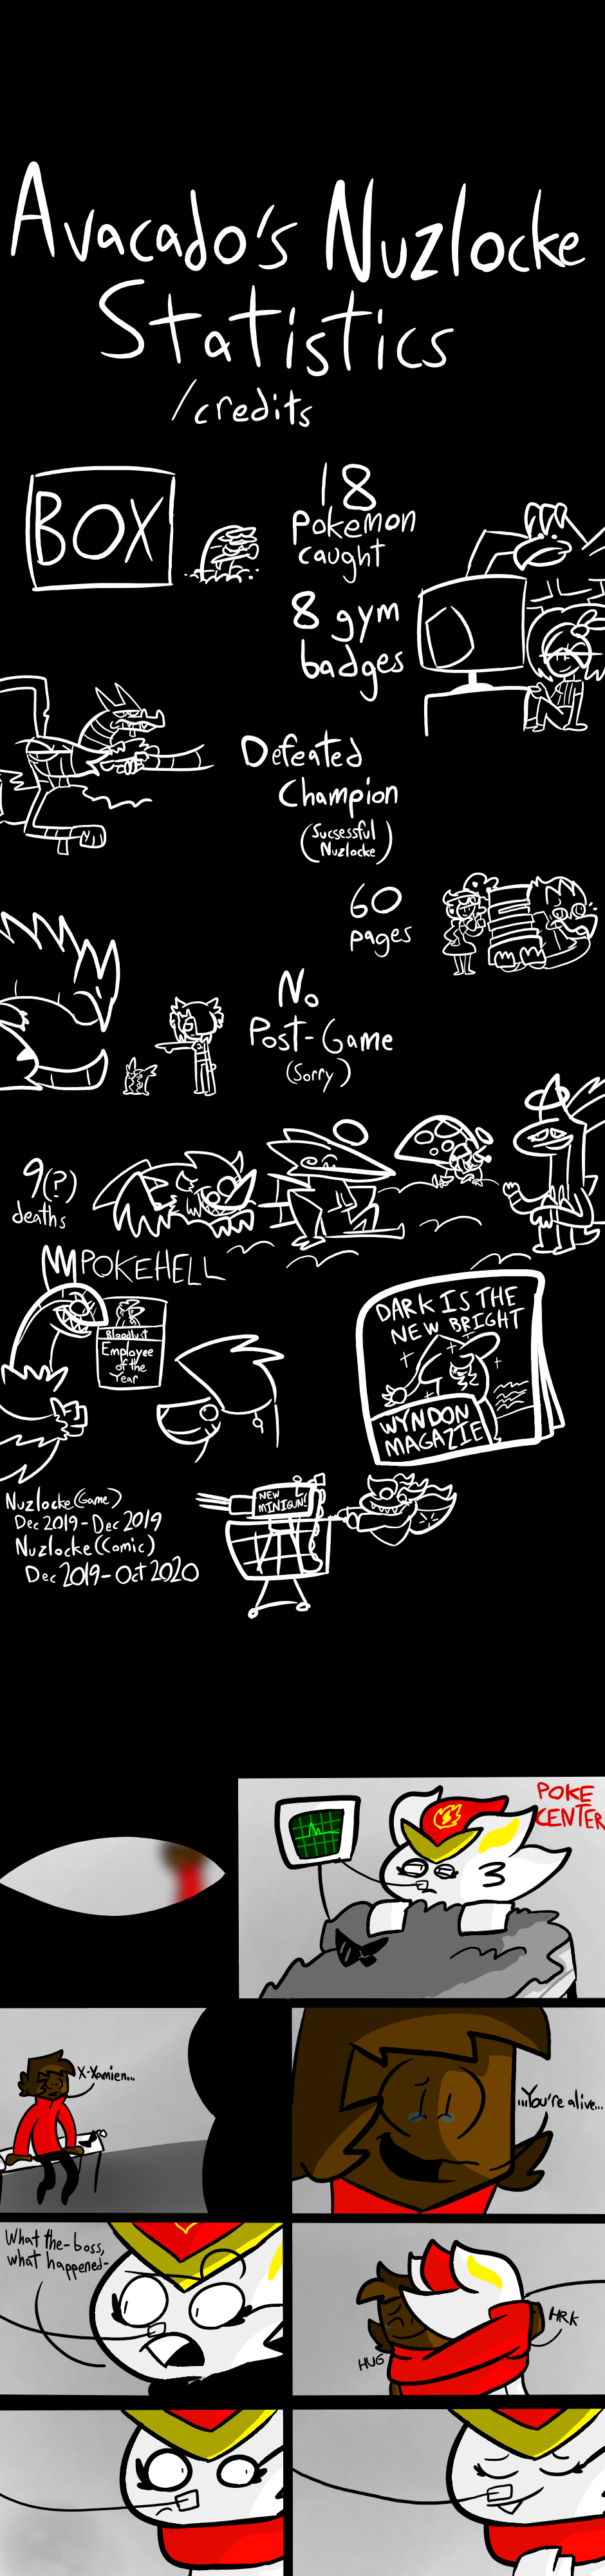 Avacado's Nuzlocke
Statistics
/credits
BOX
18
pokemon
caught
8 gym
badges
Defeated
Champion
(Sucsessful
Nuzlocke)
60
pages
No
Post-Game
(Sorry)
9(?)
deaths
POKEHELL
Bloodlust
Employee
of the
Year
DARK IS THE
NEW BRIGHT
WYNDON
MAGAZIE
Nuzlocke (Game)
Dec 2019 - Dec 2019
Nuzlocke (Comic)
Dec 2019 - Oct 2020
NEW
MINIGUN!
POKE
CENTER
X-Xamien...
...You're alive...
What the-boss,
what happened-
HUG
HRK